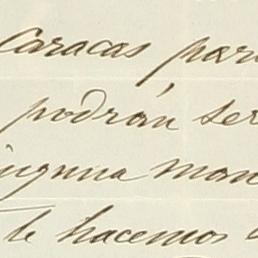 Caracas para
podrán ser
inguna man
te hacemos